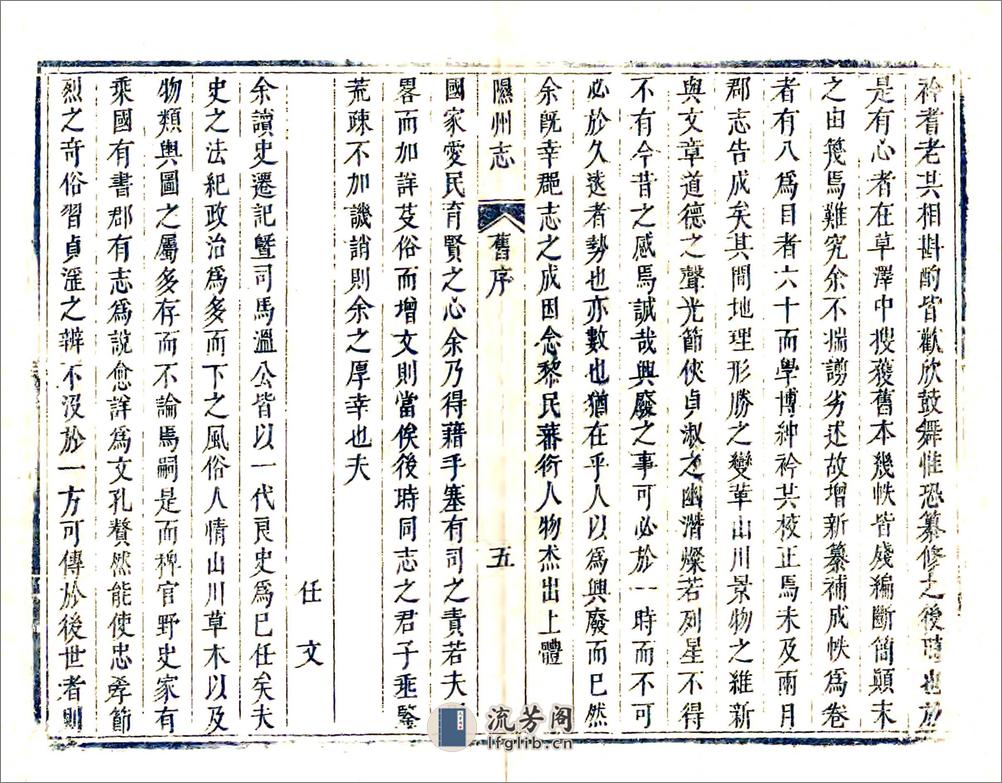 衿耆老共相斟酌皆歡欣鼓舞惟恐纂修之後時也於
是有心者在草澤中搜獲舊本幾帙皆殘編斷簡顛末
之由幾焉難究余不揣謭劣述故增新纂補成帙爲卷
者有八爲目者六十而學博紳衿共校正焉未及兩月
郡志告成矣其間地理形勝之變革山川景物之維新
與文章道德之聲光節俠貞淑之幽潛燦若列星不得
不有今昔之感焉誠哉興廢之事可必於一時而不可
必於久遠者勢也亦數也猶在乎人以爲興廢而已然
余旣幸郡志之成因念黎民蕃衍人物杰出上體
隰州志 舊序 五
國家愛民育賢之心余乃得藉手塞有司之責若夫
畧而加詳芟俗而增文則當俟後時同志之君子垂鋻
荒疎不加譏誚則余之厚幸也夫
任文
余讀史遷記暨司馬溫公皆以一代良史爲巳任矣夫
史之法紀政治爲多而下之風俗人情山川草木以及
物類輿圖之屬多存而不論焉嗣是而稗官野史家有
乘國有書郡有志爲說愈詳爲文孔贅然能使忠孝節
烈之奇俗習貞淫之辨不沒於一方可傳於後世者則
流芳阁
lfglib.cn